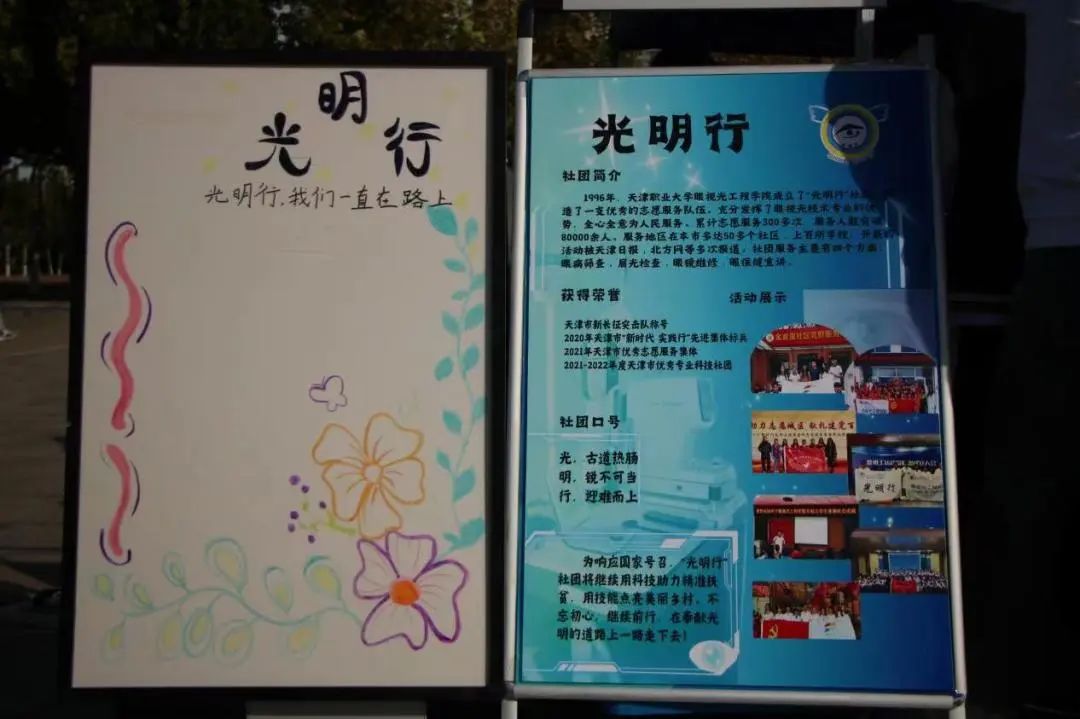 光明行
光明行,我们一直在路上
光明行
社团简介
1996年,天津职业大学眼视光工程学院成立了"光明行"社
造了一支优秀的志愿服务队伍。充分发挥了眼视光技术专业的优
势,全心全意为人民服务。累计志愿服务300多次,服务人数突破
80000余人。服务地区在本市多达50多个社区,上百所学院,开展的
活动被天津日报,北方网等多次报道。社团服务主要有四个方面:
眼病筛查,屈光检查,眼镜维修,眼保健宣讲。
获得荣誉
活动展示
天津市新长征突击队称号
2020年天津市"新时代 实践行"先进集体标兵
2021年天津市优秀志愿服务集体
2021-2022年度天津市优秀专业科技社团
社团口号
光,古道热肠
明,锐不可当
行,迎难而上
为响应国家号召,"光明行"
社团将继续用科技助力精准扶
贫,用技能点亮美丽乡村。不
忘初心,继续前行,在奉献光
明的道路上一路走下去!
光明行